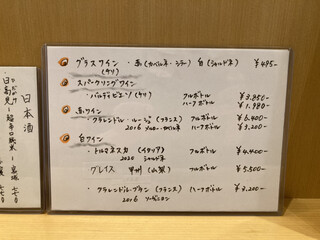 グラスワイン ・赤(カベルネ・シラー) 白(シャルドネ) ¥495-
(チリ)
スパークリングワイン
・バルディビエソ(チリ) フルボトル ¥3.850-
ハーフボトル ¥1.980-
赤ワイン
・クラレンドル・ルージュ(フランス) フルボトル ¥6.400-
2016 メルロー・カベルネ ハーフボトル ¥3.200-
白ワイン
・トルマレスカ(イタリア) フルボトル ¥4.400-
2020 シャルドネ
グレイス 甲州(山梨) フルボトル ¥5.500-
・クラレンドル・ブラン(フランス) ハーフボトル ¥3.200-
2016 ソーヴィニヨン
日本酒